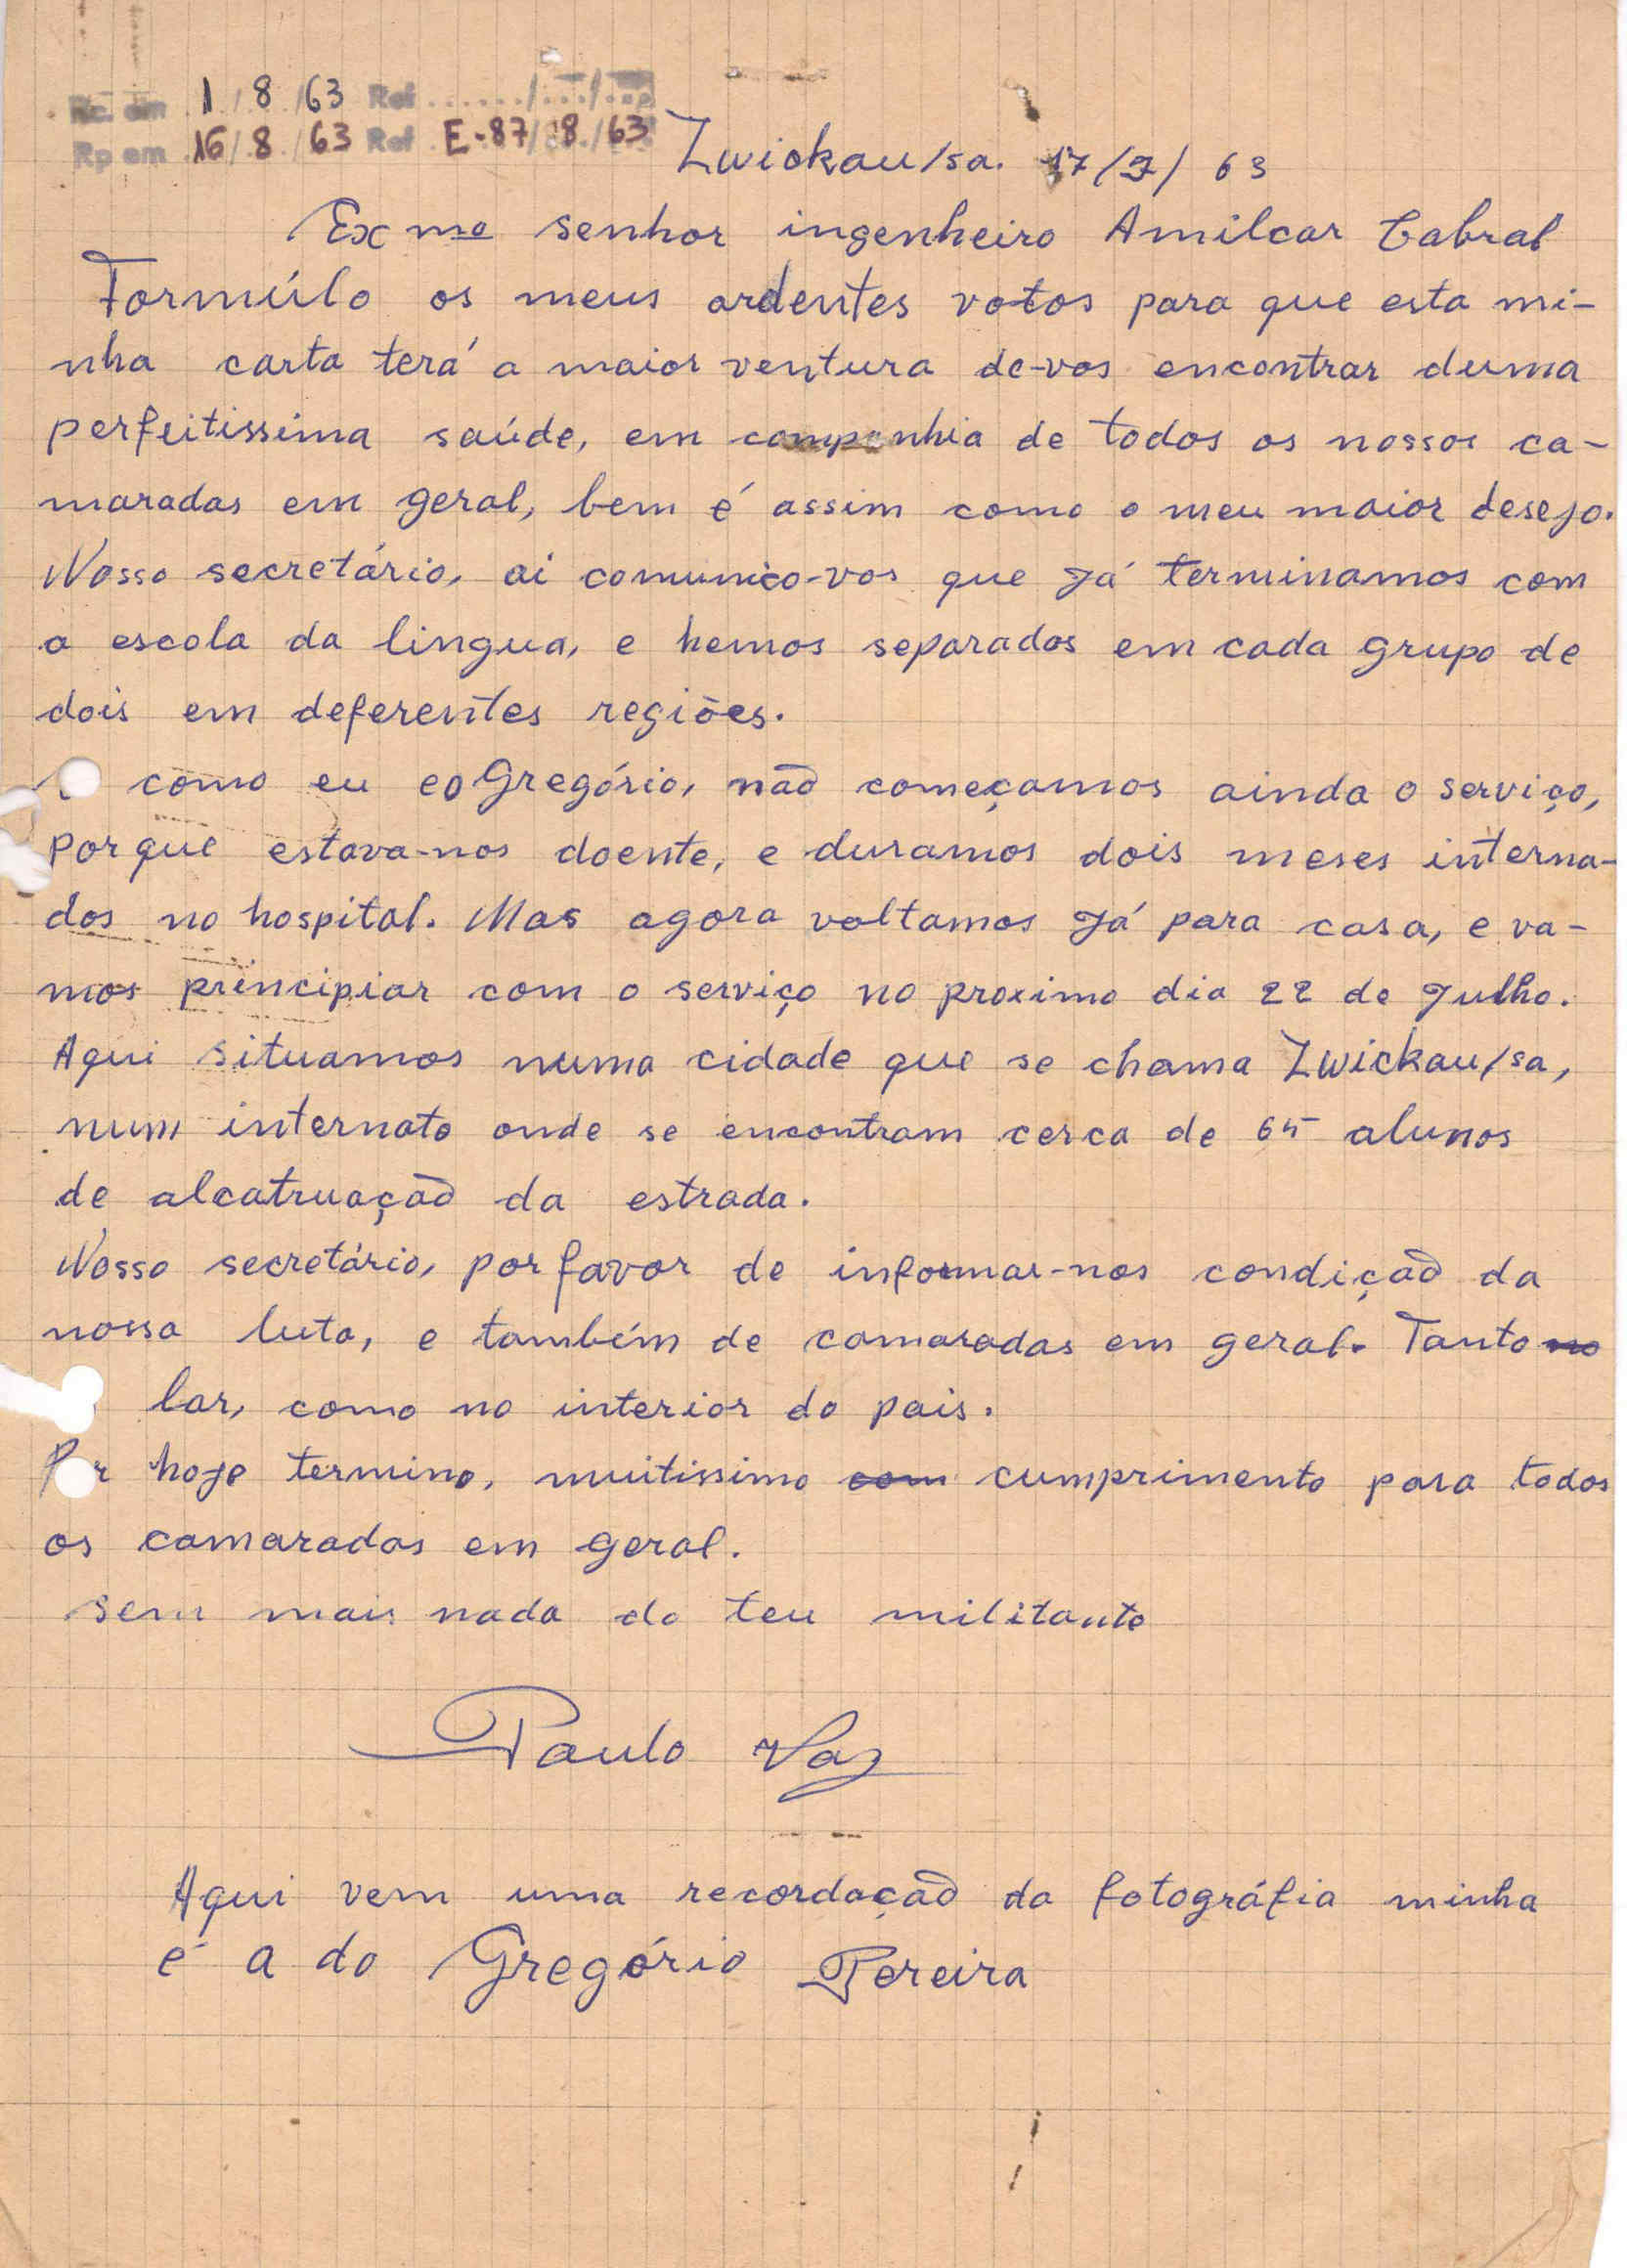 Rc. em 1/8/63 Ref ....../.../...
Rp em 16/8/63 Ref E-87/8/63
Zwickau/sa. 17/7/63
Exmo senhor ingenheiro Amilcar Cabral
Formúlo os meus ardentes votos para que esta mi-
nha carta terá a maior ventura de-vos encontrar duma
perfeitissima saúde, em companhia de todos os nossos ca-
maradas em geral, bem é assim como o meu maior desejo.
Nosso secretário, ai comunico-vos que Já terminamos com
a escola da lingua, e hemos separados em cada grupo de
dois em deferentes regiões.
como eu eo Gregório, não começamos ainda o serviço,
porque estava-nos doente, e duramos dois meses interna-
dos no hospital. Mas agora voltamos Já para casa, e va-
mos principiar com o serviço no proximo dia 22 de Julho.
Aqui situamos numa cidade que se chama Zwickau/sa,
num internato onde se encontram cerca de 65 alunos
de alcatruação da estrada.
Nosso secretário, por favor de informar-nos condição da
nossa luta, e também de camaradas em geral. Tanto no
lar, como no interior do pais.
Por hoje termino, muitissimo com cumprimento para todos
os camaradas em geral.
sem mais nada do teu militante
Paulo Vaz
Aqui vem uma recordação da fotográfia minha
é a do Gregório Pereira